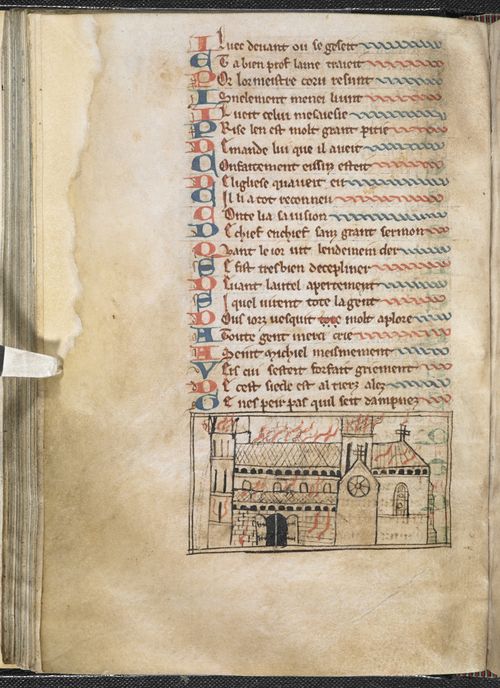 I luec deuant ou se geseit
E T a bien prof laine traieit
P Or lor meistre coru resunt
I Snelement menei liunt
I L ueit celui mesaesie
P Rise len est molt grant pitie
D Emande lui que il aueit
C Onfaitement eissiz esteit
D E liglese quaueit eu
C Il li a tot reconneu
C Onte li a sa uision
D E chief en chief sanz grant sermon
Q Uant le ior uit lendemein cler
S E fist tres bien decepliner
D Euant lautel apertement
S I quel uirent tote la gent
D Ous iorz uesquit tote molt aplore
A Toute gent merci crie
A Seint Michiel meismement
V Ers cui sesteit forfait griement
D E cest siecle est al tierz alez
O E nes peir pas quil seit dampnez